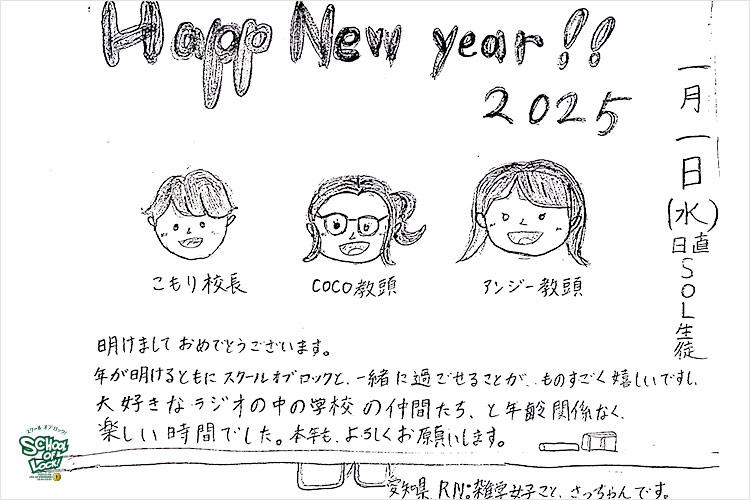 Happy New year!!
2025
一月一日(水)
日直 SOL生徒
こもり校長
COCO教頭
アンジー教頭
明けましておめでとうございます。
年が明けるともにスクールオブロックと、一緒に過ごせることが、ものすごく嬉しいですし、
大好きなラジオの中の学校の仲間たち、と年齢関係なく、
楽しい時間でした。本年も、よろしくお願いします。
愛知県 RN:雑学女子こと、さっちゃんです。
スクールオブロック!
SCHOOL
OF
LOCK!